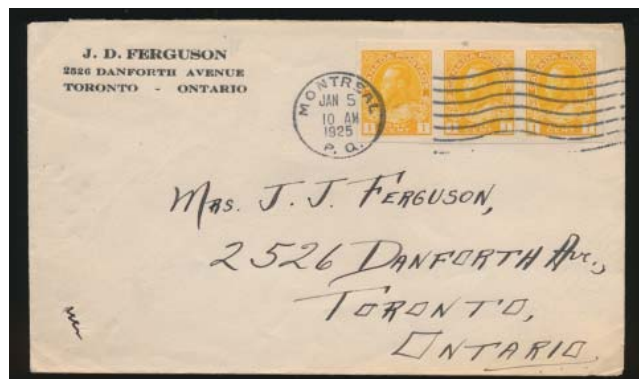 J. D. FERGUSON
2526 DANFORTH AVENUE
TORONTO - ONTARIO
MONTREAL
JAN 5
10 AM
1925
P. Q.
1 1
MRS. J. J. FERGUSON,
2526 DANFORTH AVE.,
TORONTO,
ONTARIO